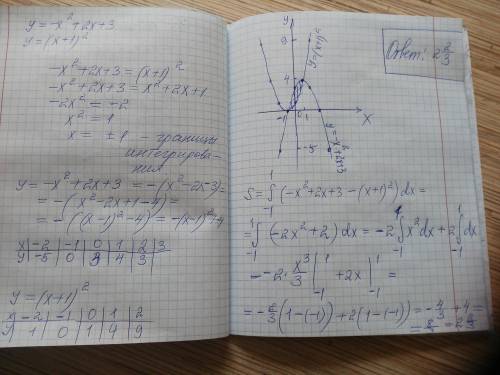 y = -x² + 2x + 3
y = (x+1)²
-x² + 2x + 3 = (x+1)²
-x² + 2x + 3 = x² + 2x + 1
-2x² = -2
x² = 1
x = ±1 - границы
интегрирова-
ния
y = -x² + 2x + 3 = -(x² - 2x - 3) =
= -(x² - 2x + 1 - 4) =
= -((x-1)² - 4) = -(x-1)² + 4
x | -2 | -1 | 0 | 1 | 2 | 3
y | -5 | 0 | 3 | 4 | 3 |
y = (x+1)²
x | -2 | -1 | 0 | 1 | 2
y | 1 | 0 | 1 | 4 | 9
y
9
y=(x+1)²
4
-1 0 1 X
-5
y=-x²+2x+3
Ответ: 2 2/3
S = ∫₋₁¹ (-x² + 2x + 3 - (x+1)²) dx =
= ∫₋₁¹ (-2x² + 2) dx = -2 ∫₋₁¹ x² dx + 2 ∫₋₁¹ dx
= -2 · x³/3 |₋₁¹ + 2x |₋₁¹ =
= -2/3 (1 - (-1)) + 2(1 - (-1)) = -4/3 + 4 =
= 8/3 = 2 2/3